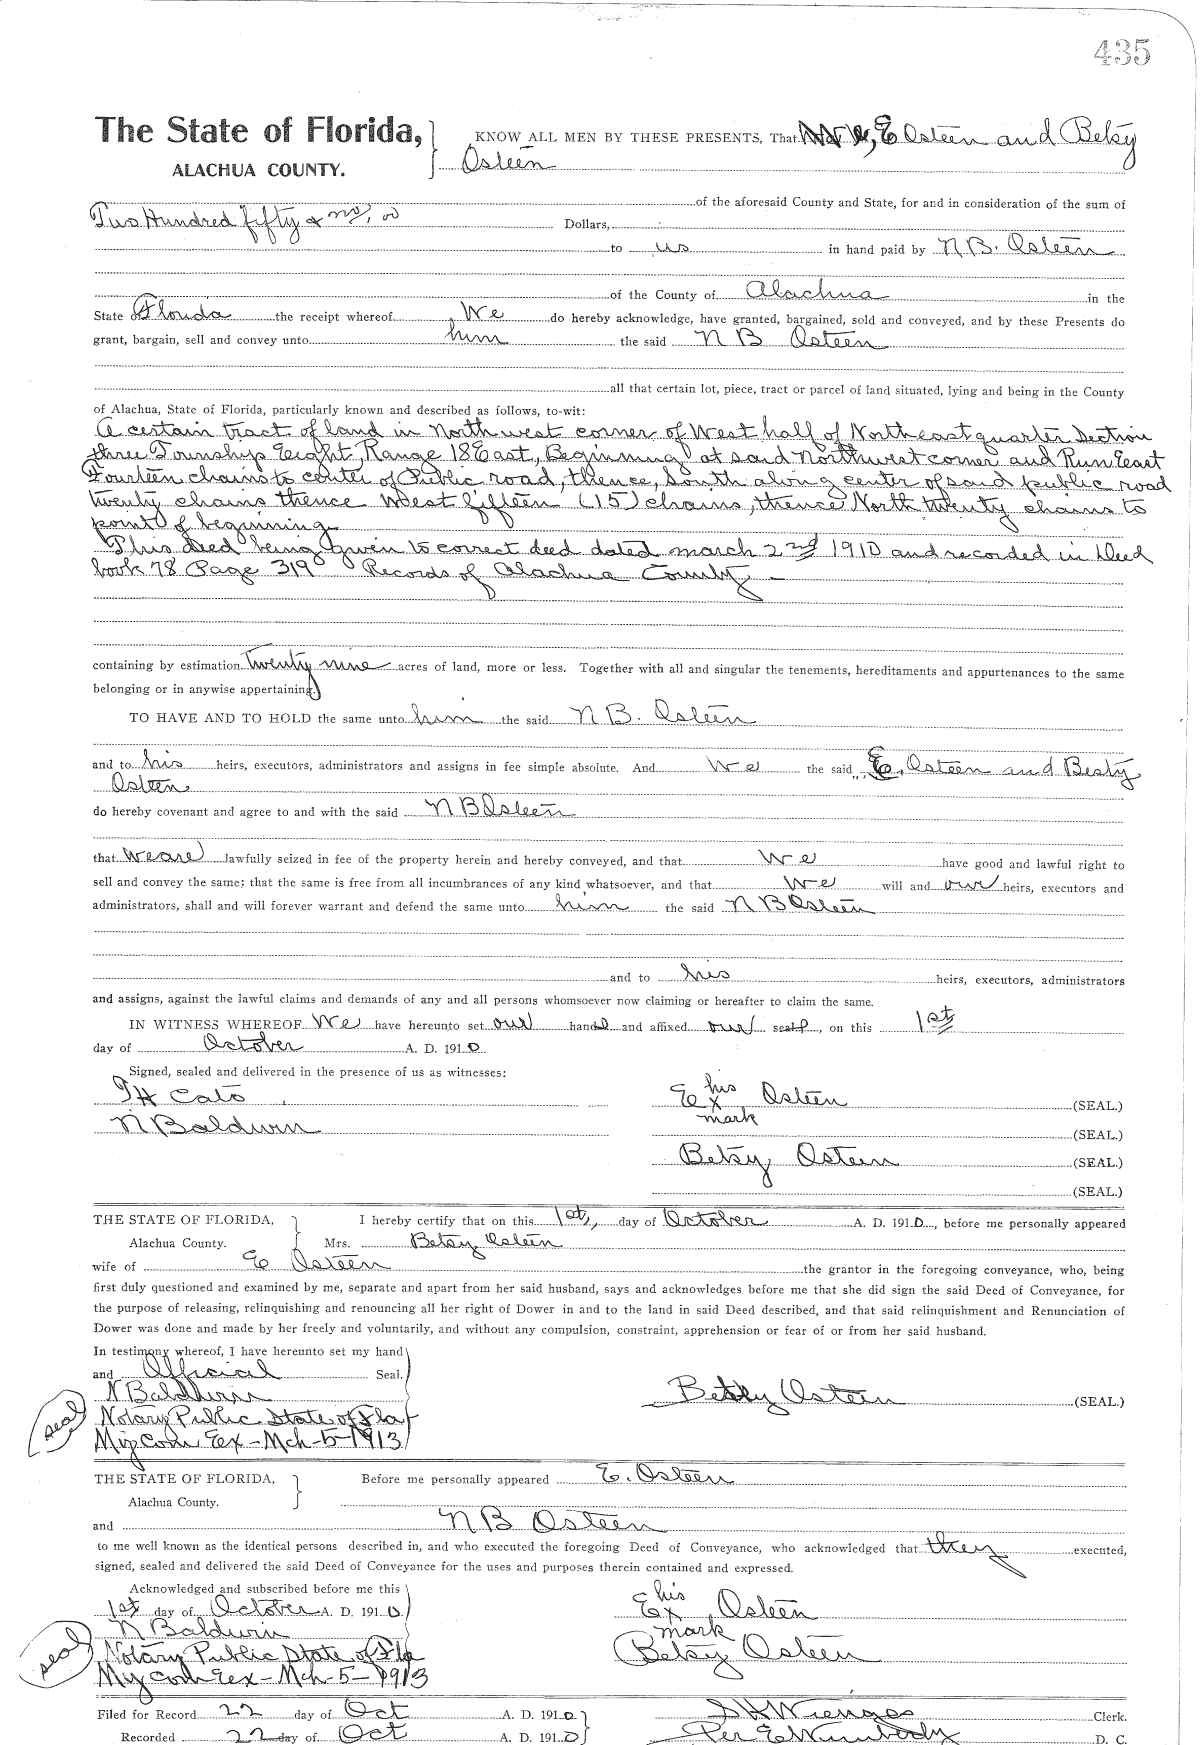 435
The State of Florida,
ALACHUA COUNTY.
KNOW ALL MEN BY THESE PRESENTS, That E Osteen and Betsy
Osteen
of the aforesaid County and State, for and in consideration of the sum of
Two Hundred fifty & no/00 Dollars,
to us in hand paid by N.B. Osteen
of the County of Alachua in the
State of Florida the receipt whereof We do hereby acknowledge, have granted, bargained, sold and conveyed, and by these Presents do
grant, bargain, sell and convey unto him the said N B Osteen
all that certain lot, piece, tract or parcel of land situated, lying and being in the County
of Alachua, State of Florida, particularly known and described as follows, to-wit:
A certain tract of land in Northwest corner of West half of Northeast quarter Section
three Township Eight, Range 18 East, Beginning at said Northwest corner and Run East
Fourteen chains to center of Public road, thence, South along center of said public road
twenty chains thence West fifteen (15) chains, thence North twenty chains to
point of beginning.
This deed being given to correct deed dated march 2nd 1910 and recorded in Deed
book 78 Page 319 Records of Alachua County —
containing by estimation twenty nine acres of land, more or less. Together with all and singular the tenements, hereditaments and appurtenances to the same
belonging or in anywise appertaining.
TO HAVE AND TO HOLD the same unto him the said N B. Osteen
and to his heirs, executors, administrators and assigns in fee simple absolute. And We the said E. Osteen and Besty
Osteen
do hereby covenant and agree to and with the said N B Osteen
that we are lawfully seized in fee of the property herein and hereby conveyed, and that We have good and lawful right to
sell and convey the same; that the same is free from all incumbrances of any kind whatsoever, and that We will and our heirs, executors and
administrators, shall and will forever warrant and defend the same unto him the said N B Osteen
and to his heirs, executors, administrators
and assigns, against the lawful claims and demands of any and all persons whomsoever now claiming or hereafter to claim the same.
IN WITNESS WHEREOF We have hereunto set our hands and affixed our seals, on this 1st
day of October A. D. 1910
Signed, sealed and delivered in the presence of us as witnesses:
T H Cato
N Baldwin
his
E x Osteen (SEAL.)
mark
(SEAL.)
Betsy Osteen (SEAL.)
(SEAL.)
THE STATE OF FLORIDA, I hereby certify that on this 1st, day of October A. D. 1910, before me personally appeared
Alachua County. Mrs. Betsy Osteen
wife of E Osteen the grantor in the foregoing conveyance, who, being
first duly questioned and examined by me, separate and apart from her said husband, says and acknowledges before me that she did sign the said Deed of Conveyance, for
the purpose of releasing, relinquishing and renouncing all her right of Dower in and to the land in said Deed described, and that said relinquishment and Renunciation of
Dower was done and made by her freely and voluntarily, and without any compulsion, constraint, apprehension or fear of or from her said husband.
In testimony whereof, I have hereunto set my hand
and Official Seal.
N Baldwin
Betsy Osteen (SEAL.)
seal
Notary Public State of Fla
My com Ex – Mch – 5 – 1913
THE STATE OF FLORIDA, Before me personally appeared E. Osteen
Alachua County.
and N B Osteen
to me well known as the identical persons described in, and who executed the foregoing Deed of Conveyance, who acknowledged that they executed,
signed, sealed and delivered the said Deed of Conveyance for the uses and purposes therein contained and expressed.
Acknowledged and subscribed before me this
1st day of October A. D. 1910
his
E x Osteen
mark
N Baldwin
Betsy Osteen
seal
Notary Public State of Fla
My com Ex – Mch – 5 – 1913
Filed for Record 22 day of Oct A. D. 1910 S H Wienges Clerk.
Recorded 22 day of Oct A. D. 1910 Per E Wimberly D. C.